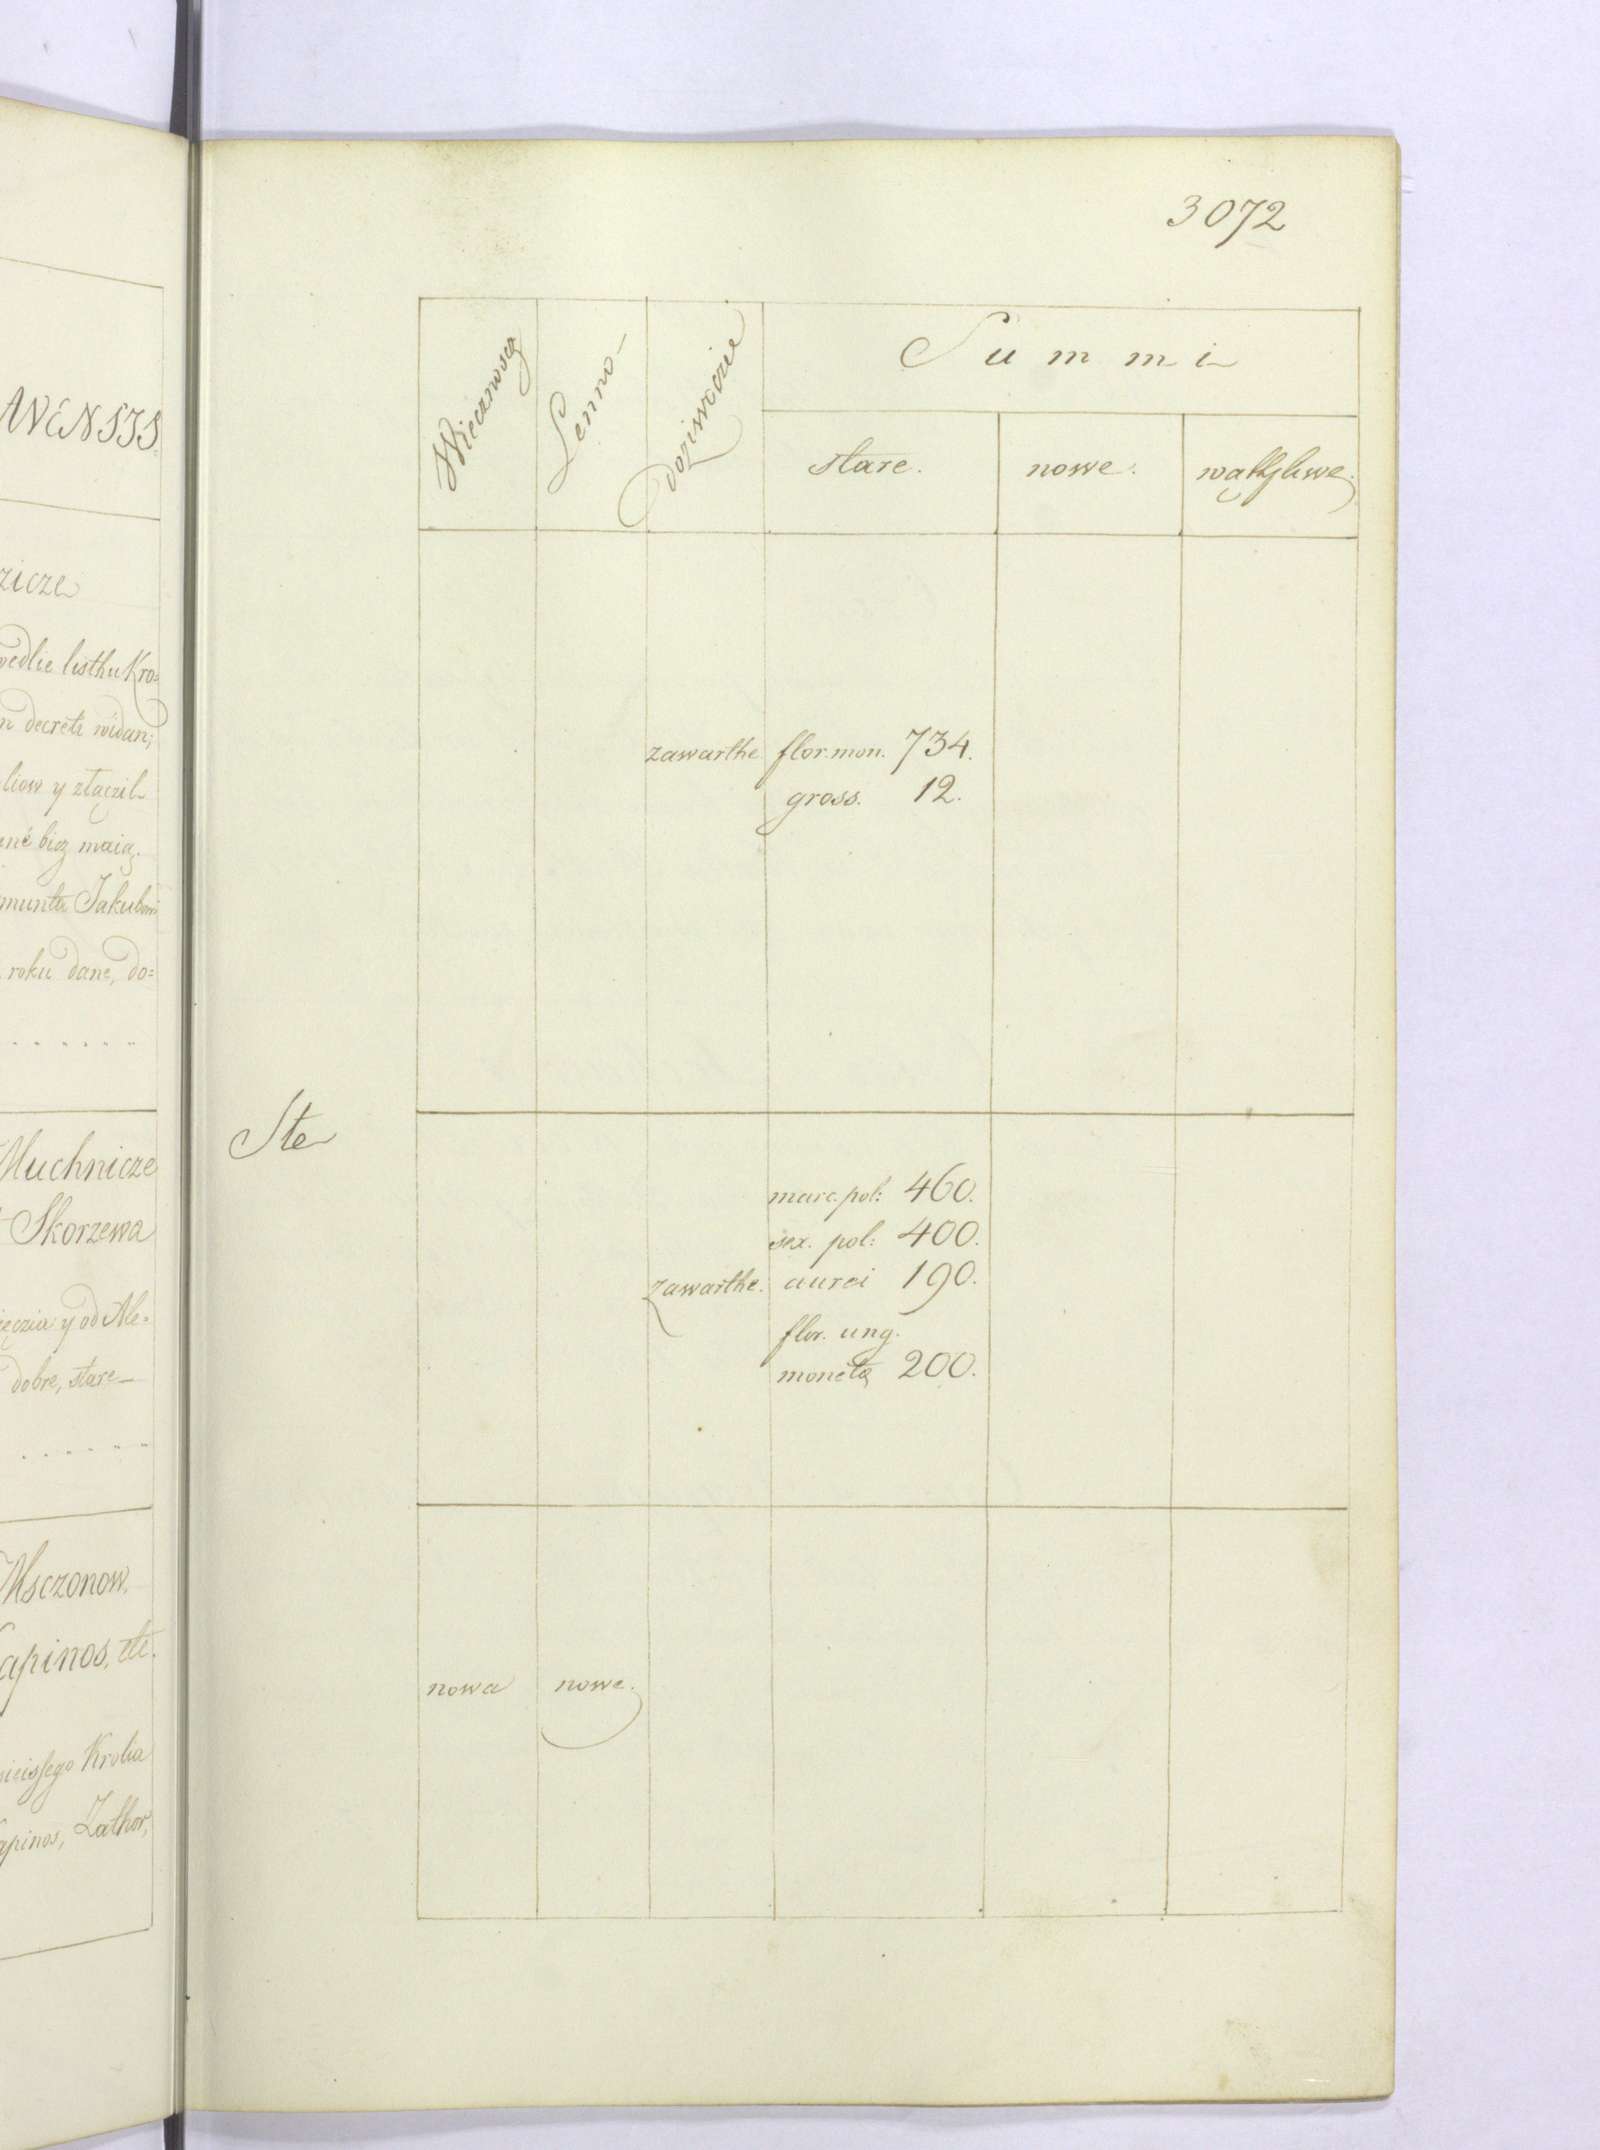 AVENSIS.
zicze
wedlie listhu Kro=
n decreti widani
liow y złączil
ané bicz maią.
munta Jakubowi
roku dane, do=
Muchnicze
Skorzewa
ięczia y od Ale=
dobre, stare
Msczonow.
Kapinos, etc.
nieissego Krolia
apinos, Zathor,
3072
Wiecznoscz
Lenno
Doziwocie
Summi
stare.
nowe.
wąthpliwe.
zawarthe. flor. mon. 734.
gross. 12.
Ste
marc. pol: 460.
sex. pol: 400.
zawarthe. aurei 190.
flor. ung.
monetą 200.
nowa nowe.